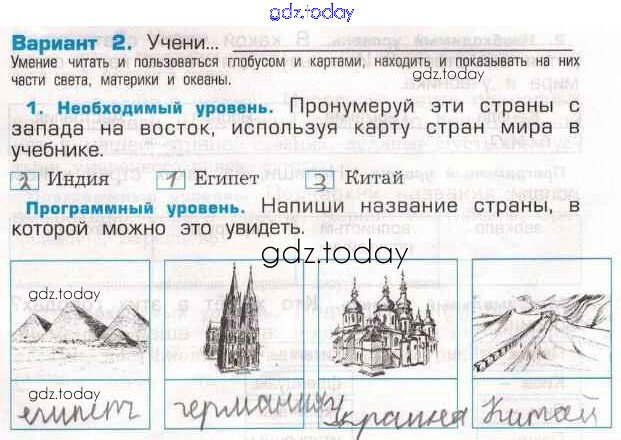 gdz.today
Вариант 2. Учени...
Умение читать и пользоваться глобусом и картами, находить и показывать на них
gdz.today
части света, материки и океаны.
1. Необходимый уровень. Пронумеруй эти страны с
запада на восток, используя карту стран мира в
учебнике.
2 Индия 1 Египет 3 Китай
Программный уровень. Напиши название страны, в
которой можно это увидеть.
gdz.today
gdz.today
gdz.today
египет германия Украина Китай